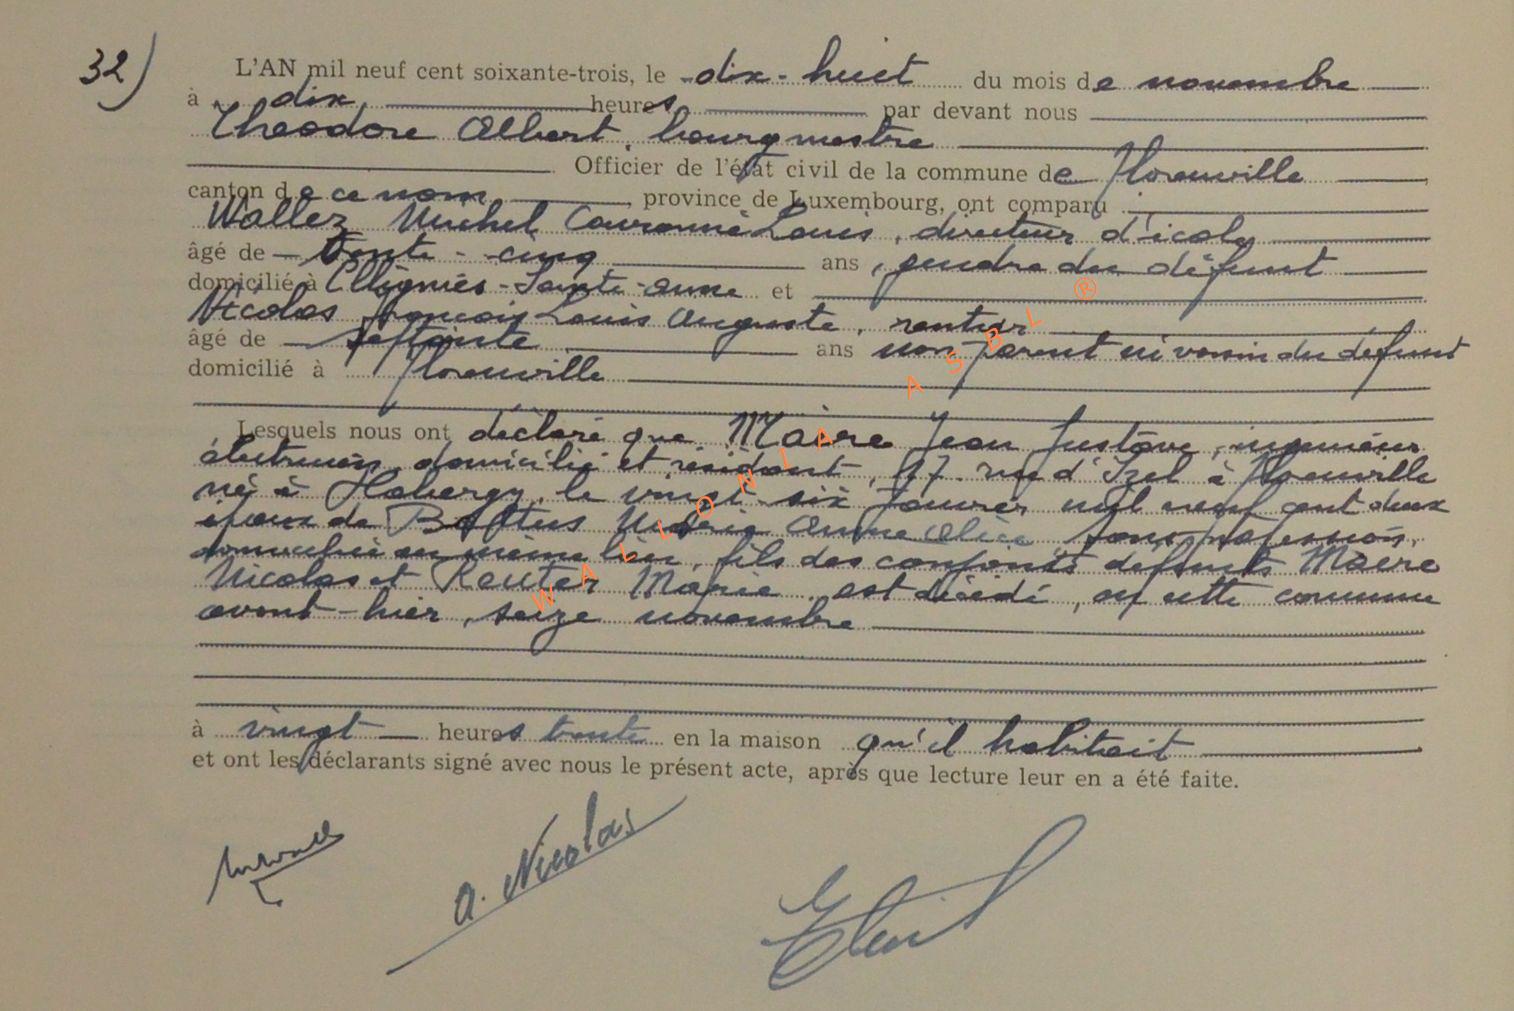 32)
L'AN mil neuf cent soixante-trois, le dix-huit du mois de novembre
à dix heures par devant nous
Theodore Albert, bourgmestre
Officier de l'état civil de la commune de Florenville
canton de ce nom, province de Luxembourg, ont comparu
Wallez Michel Couronné Louis, directeur d'école
âgé de trente-cinq ans, gendre du défunt
domicilié à Ellignies-Sainte-Anne et
Nicolas François Louis Auguste, rentier
âgé de septante ans non parent ni voisin du défunt
domicilié à Florenville
Lesquels nous ont déclaré que Maere Jean Gustave, ingénieur
électricien, domicilié et résidant, 17 rue d'Izel à Florenville
né à Habergy, le vingt-six janvier mil neuf cent deux
époux de Marie Anne Alice sans profession,
domiciliée au même lieu, fils des conjoints défunts Maere
Nicolas et Reuter Marie, est décédé, en cette commune
avant-hier, seize novembre
à vingt heures trente en la maison qu'il habitait
et ont les déclarants signé avec nous le présent acte, après que lecture leur en a été faite.
A. Nicolas
WALLONIA ASBL ®